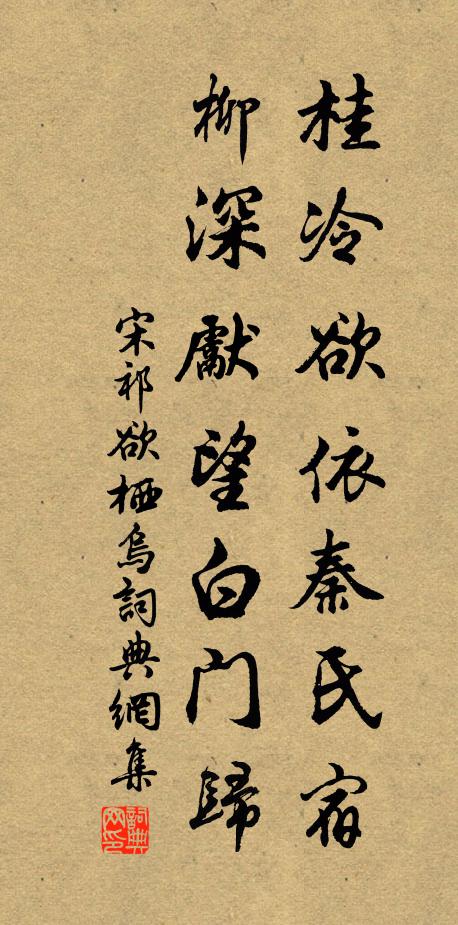 桂冷欲依秦氏宿
柳深獻望白门歸
宋祁欲栖烏詞典網集
詞典网印